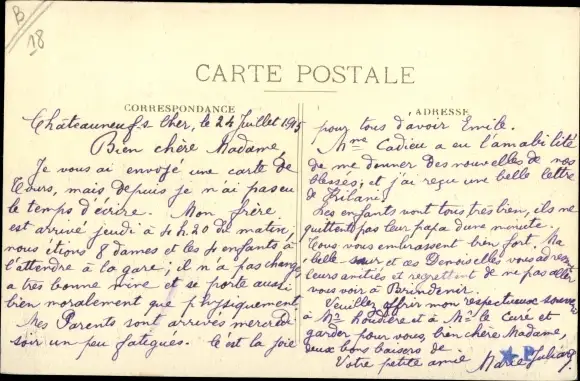 B
18
CARTE POSTALE
CORRESPONDANCE
Châteauneuf s Cher, le 24 Juillet 1915
Bien chère Madame,
Je vous ai envoyé une carte de
Tours, mais depuis je n'ai pas eu
le temps d'écrire. Mon frère
est arrivé jeudi à 4h20 du matin,
nous étions 8 dames et les 4 enfants à
l'attendre à la gare; il n'a pas changé
a très bonne mine et se porte aussi
bien moralement que physiquement
Mes Parents sont arrivés mercredi
soir un peu fatigués. C'est la joie
ADRESSE
pour tous d'avoir Emile.
Mme Cadieu a eu l'amabilité
de me donner des nouvelles de nos
blessés; et j'ai reçu une belle lettre
de
Les enfants vont tous très bien, ils ne
quittent pas leur papa d'une minute.
Tous vous embrassent bien fort. Ma
belle-sœur et vous
leurs amitiés et regrettent de ne pas aller
vous voir à
Veuillez offrir mon respectueux
à Mr et à Mr le Curé et
garder pour vous, bien chère Madame,
deux bons baisers de
Votre petite amie Marie